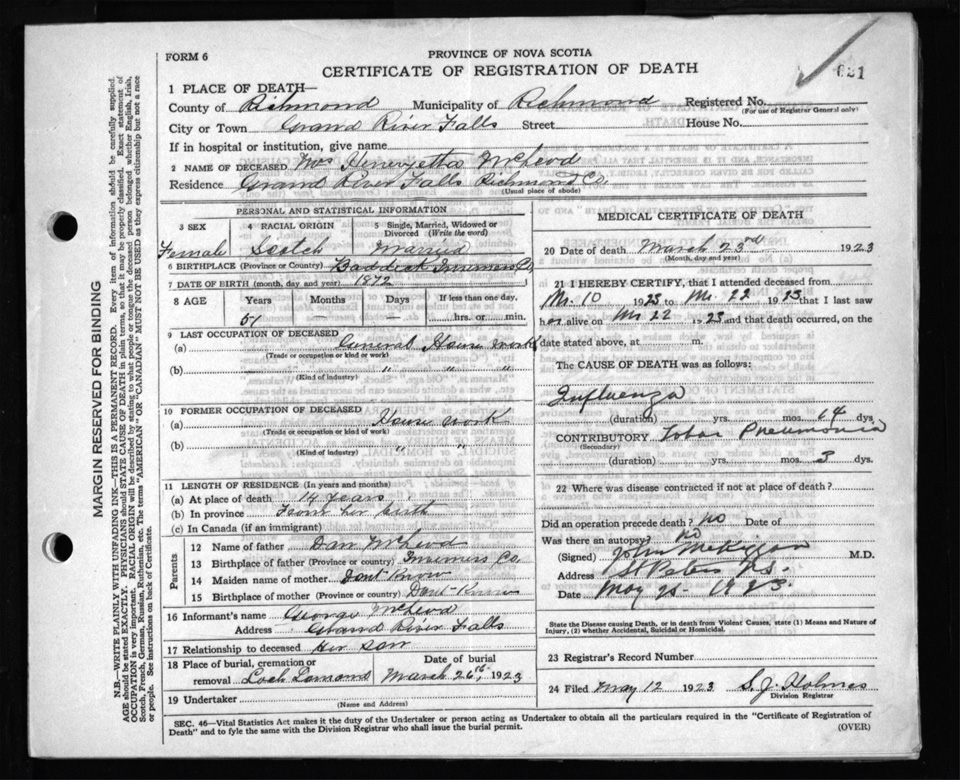 FORM 6
PROVINCE OF NOVA SCOTIA
CERTIFICATE OF REGISTRATION OF DEATH
621
1 PLACE OF DEATH—
County of Richmond Municipality of Richmond Registered No.
(For use of Registrar General only)
City or Town Grand River Falls Street House No.
If in hospital or institution, give name
2 NAME OF DECEASED Mrs Henrietta McLeod
Residence Grand River Falls Richmond Co.
(Usual place of abode)
PERSONAL AND STATISTICAL INFORMATION
3 SEX 4 RACIAL ORIGIN 5 Single, Married, Widowed or Divorced (Write the word)
Female Scotch Married
6 BIRTHPLACE (Province or Country) Baddeck Inverness Co.
7 DATE OF BIRTH (month, day and year) 1872
8 AGE Years Months Days If less than one day,
51 — — hrs. or min.
9 LAST OCCUPATION OF DECEASED
(a) General House Work
(Trade or occupation or kind or work)
(b) " " "
(Kind of industry)
10 FORMER OCCUPATION OF DECEASED
(a) House work
(Trade or occupation or kind or work)
(b) " "
(Kind of industry)
11 LENGTH OF RESIDENCE (In years and months)
(a) At place of death 14 years
(b) In province From her birth
(c) In Canada (if an immigrant)
Parents
12 Name of father Dan McLeod
13 Birthplace of father (Province or Country) Inverness Co.
14 Maiden name of mother Dont-know
15 Birthplace of mother (Province or country) Dont-Know
16 Informant's name George McLeod
Address Grand River Falls
17 Relationship to deceased Her son
18 Place of burial, cremation or removal Loch Lomond
Date of burial March 26th, 1923
19 Undertaker
(Name and Address)
MEDICAL CERTIFICATE OF DEATH
20 Date of death March 23rd 1923
(Month, day and year)
21 I HEREBY CERTIFY, that I attended deceased from
Mr. 10 1923 to Mr. 22 1923 that I last saw
her alive on Mr 22 1923 and that death occurred, on the
date stated above, at m.
The CAUSE OF DEATH was as follows:
Influenza
(duration) yrs. mos. 14 dys.
CONTRIBUTORY Lobar Pneumonia
(Secondary)
(duration) yrs. mos. 3 dys.
22 Where was disease contracted if not at place of death?
Did an operation precede death? no Date of
Was there an autopsy? no
(Signed) John McKiggan M.D.
Address St Peters N.S.
Date May 1923
State the Disease causing Death, or in death from Violent Causes, state (1) Means and Nature of
Injury, (2) whether Accidental, Suicidal or Homicidal.
23 Registrar's Record Number
24 Filed May 12 1923 S. J. Holmes
Division Registrar
SEC. 46—Vital Statistics Act makes it the duty of the Undertaker or person acting as Undertaker to obtain all the particulars required in the "Certificate of Registration of
Death" and to fyle the same with the Division Registrar who shall issue the burial permit.
(OVER)
MARGIN RESERVED FOR BINDING
N.B.—WRITE PLAINLY WITH UNFADING INK—THIS IS A PERMANENT RECORD. Every item of information should be carefully supplied.
AGE should be stated EXACTLY. PHYSICIANS should STATE CAUSE OF DEATH in plain terms, so that it may be properly classified. Exact statement of
OCCUPATION is very important. RACIAL ORIGIN will be described by stating to what people or tongue the deceased person belongs, whether English, Irish,
Scotch, French, German, Russian, Ruthenian, etc. The terms "AMERICAN" or "CANADIAN" MUST NOT BE USED as they express citizenship but not a race
or people. See instructions on back of Certificate.